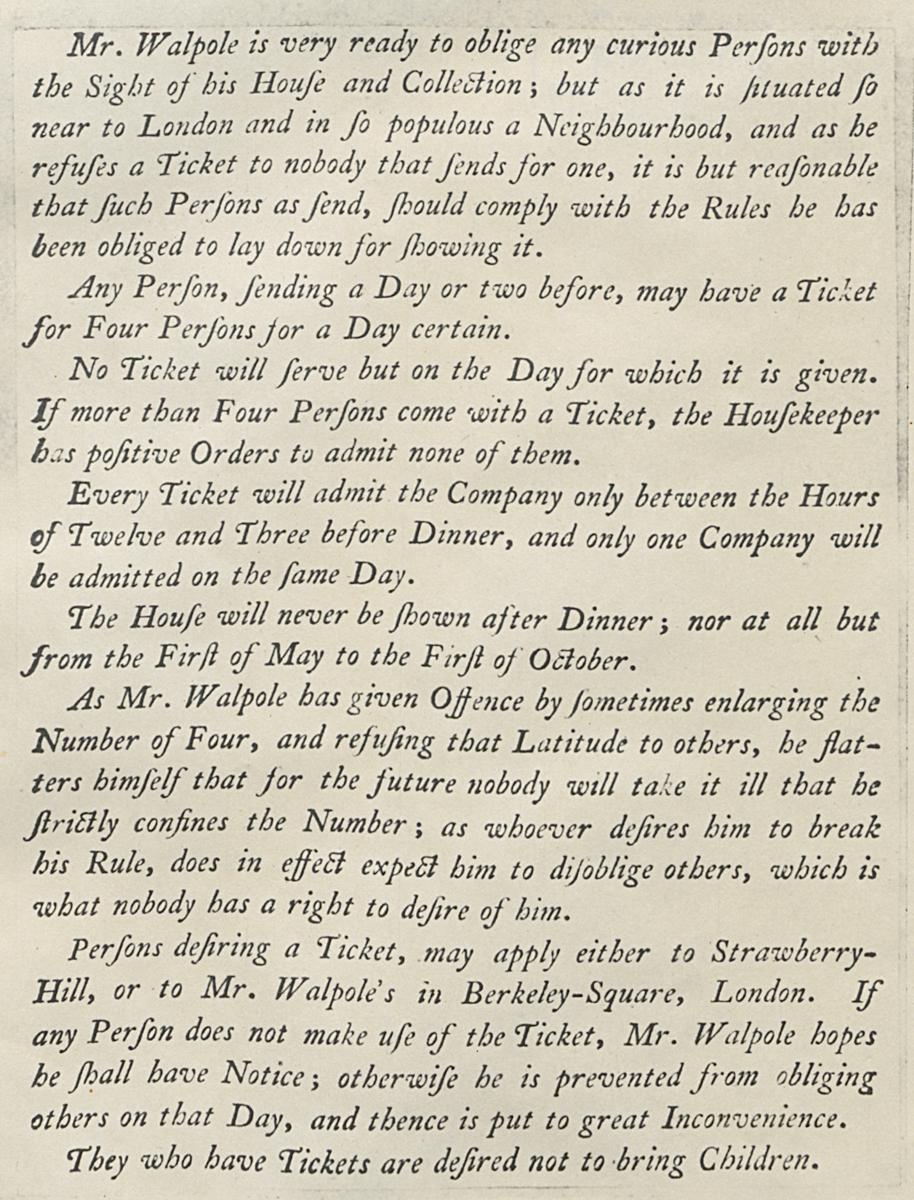 Mr. Walpole is very ready to oblige any curious Perſons with
the Sight of his Houſe and Collection; but as it is ſituated ſo
near to London and in ſo populous a Neighbourhood, and as he
refuſes a Ticket to nobody that ſends for one, it is but reaſonable
that ſuch Perſons as ſend, ſhould comply with the Rules he has
been obliged to lay down for ſhowing it.
Any Perſon, ſending a Day or two before, may have a Ticket
for Four Perſons for a Day certain.
No Ticket will ſerve but on the Day for which it is given.
If more than Four Perſons come with a Ticket, the Houſekeeper
has poſitive Orders to admit none of them.
Every Ticket will admit the Company only between the Hours
of Twelve and Three before Dinner, and only one Company will
be admitted on the ſame Day.
The Houſe will never be ſhown after Dinner; nor at all but
from the Firſt of May to the Firſt of October.
As Mr. Walpole has given Offence by ſometimes enlarging the
Number of Four, and refuſing that Latitude to others, he flat-
ters himſelf that for the future nobody will take it ill that he
ſtrictly confines the Number; as whoever deſires him to break
his Rule, does in effect expect him to diſoblige others, which is
what nobody has a right to deſire of him.
Perſons deſiring a Ticket, may apply either to Strawberry-
Hill, or to Mr. Walpole's in Berkeley-Square, London. If
any Perſon does not make uſe of the Ticket, Mr. Walpole hopes
he ſhall have Notice; otherwiſe he is prevented from obliging
others on that Day, and thence is put to great Inconvenience.
They who have Tickets are deſired not to bring Children.